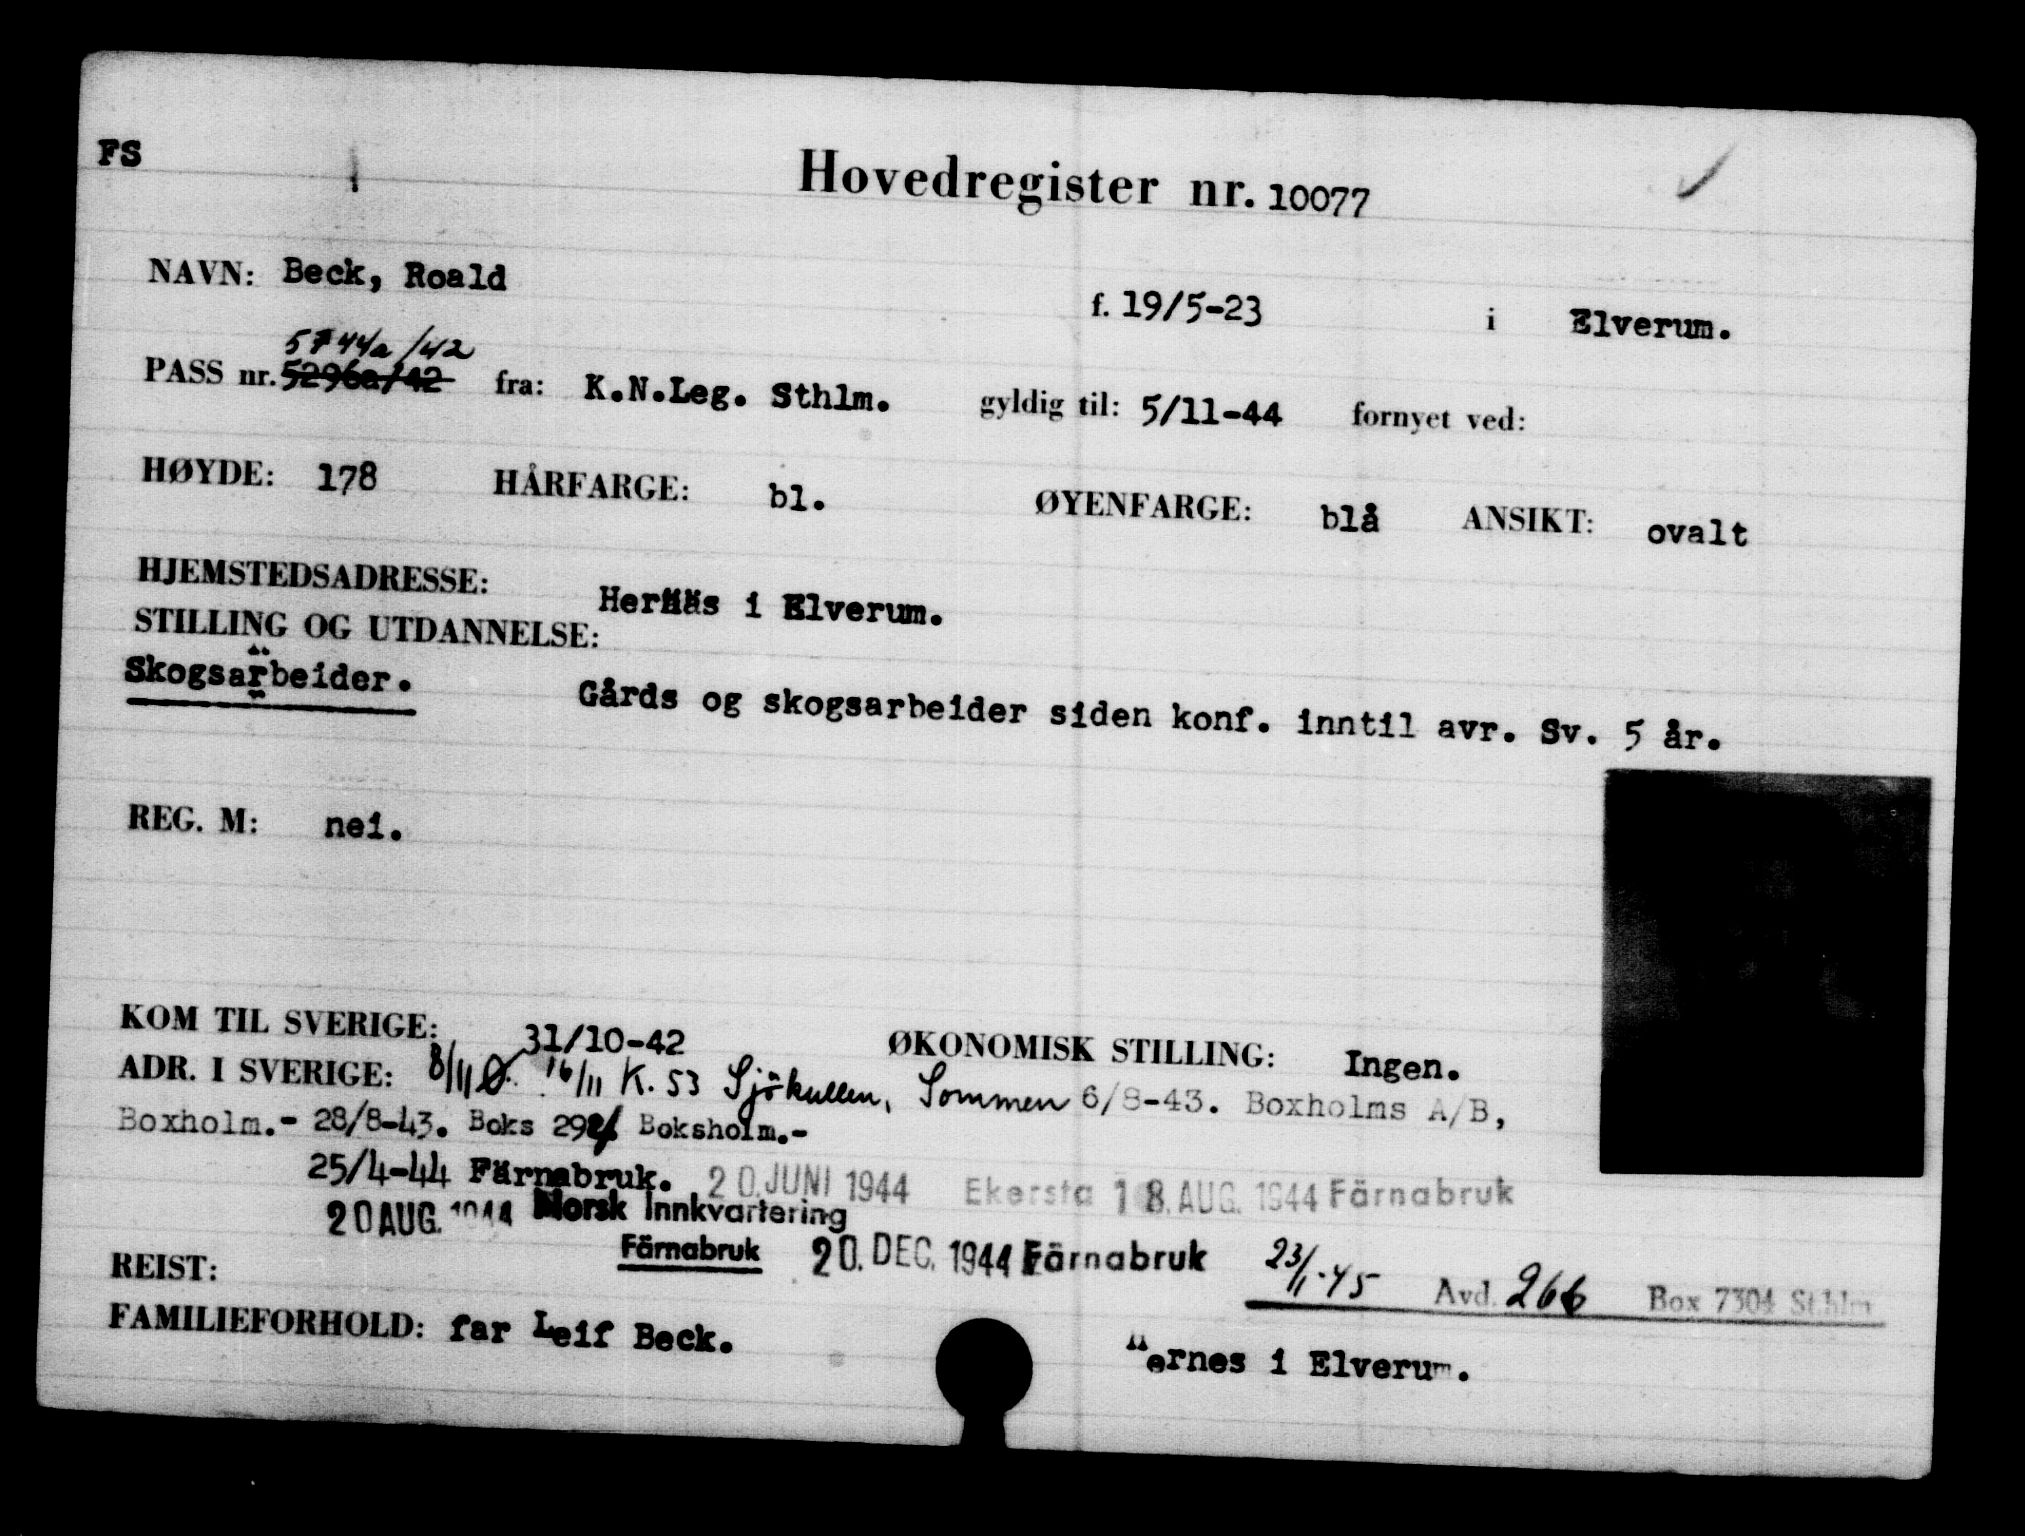 FS
Hovedregister nr. 10077
NAVN: Beck, Roald f. 19/5-23 i Elverum.
5744a/42
PASS nr. 5296a/42 fra: K.N.Leg. Sthlm. gyldig til: 5/11-44 fornyet ved:
HØYDE: 178 HÅRFARGE: bl. ØYENFARGE: blå ANSIKT: ovalt
HJEMSTEDSADRESSE: i Elverum.
STILLING OG UTDANNELSE:
Skogsarbeider. Gårds og skogsarbeider siden konf. inntil avr. Sv. 5 år.
REG. M: nei.
KOM TIL SVERIGE: 31/10-42 ØKONOMISK STILLING: Ingen.
ADR. I SVERIGE: 8/11 Ø. 16/11 K. 53 Sjökullen, Sommen 6/8-43. Boxholms A/B,
Boxholm.- 28/8-43. Boks Boksholm.-
25/4-44 Färnabruk. 20. JUNI 1944 Ekersta 18. AUG. 1944 Färnabruk
20 AUG. 1944 Norsk Innkvartering
Färnabruk 20. DEC. 1944 Färnabruk 23/1-45 Avd. 266 Box 7304 Sthlm
REIST:
FAMILIEFORHOLD: far Leif Beck. Hernes i Elverum.